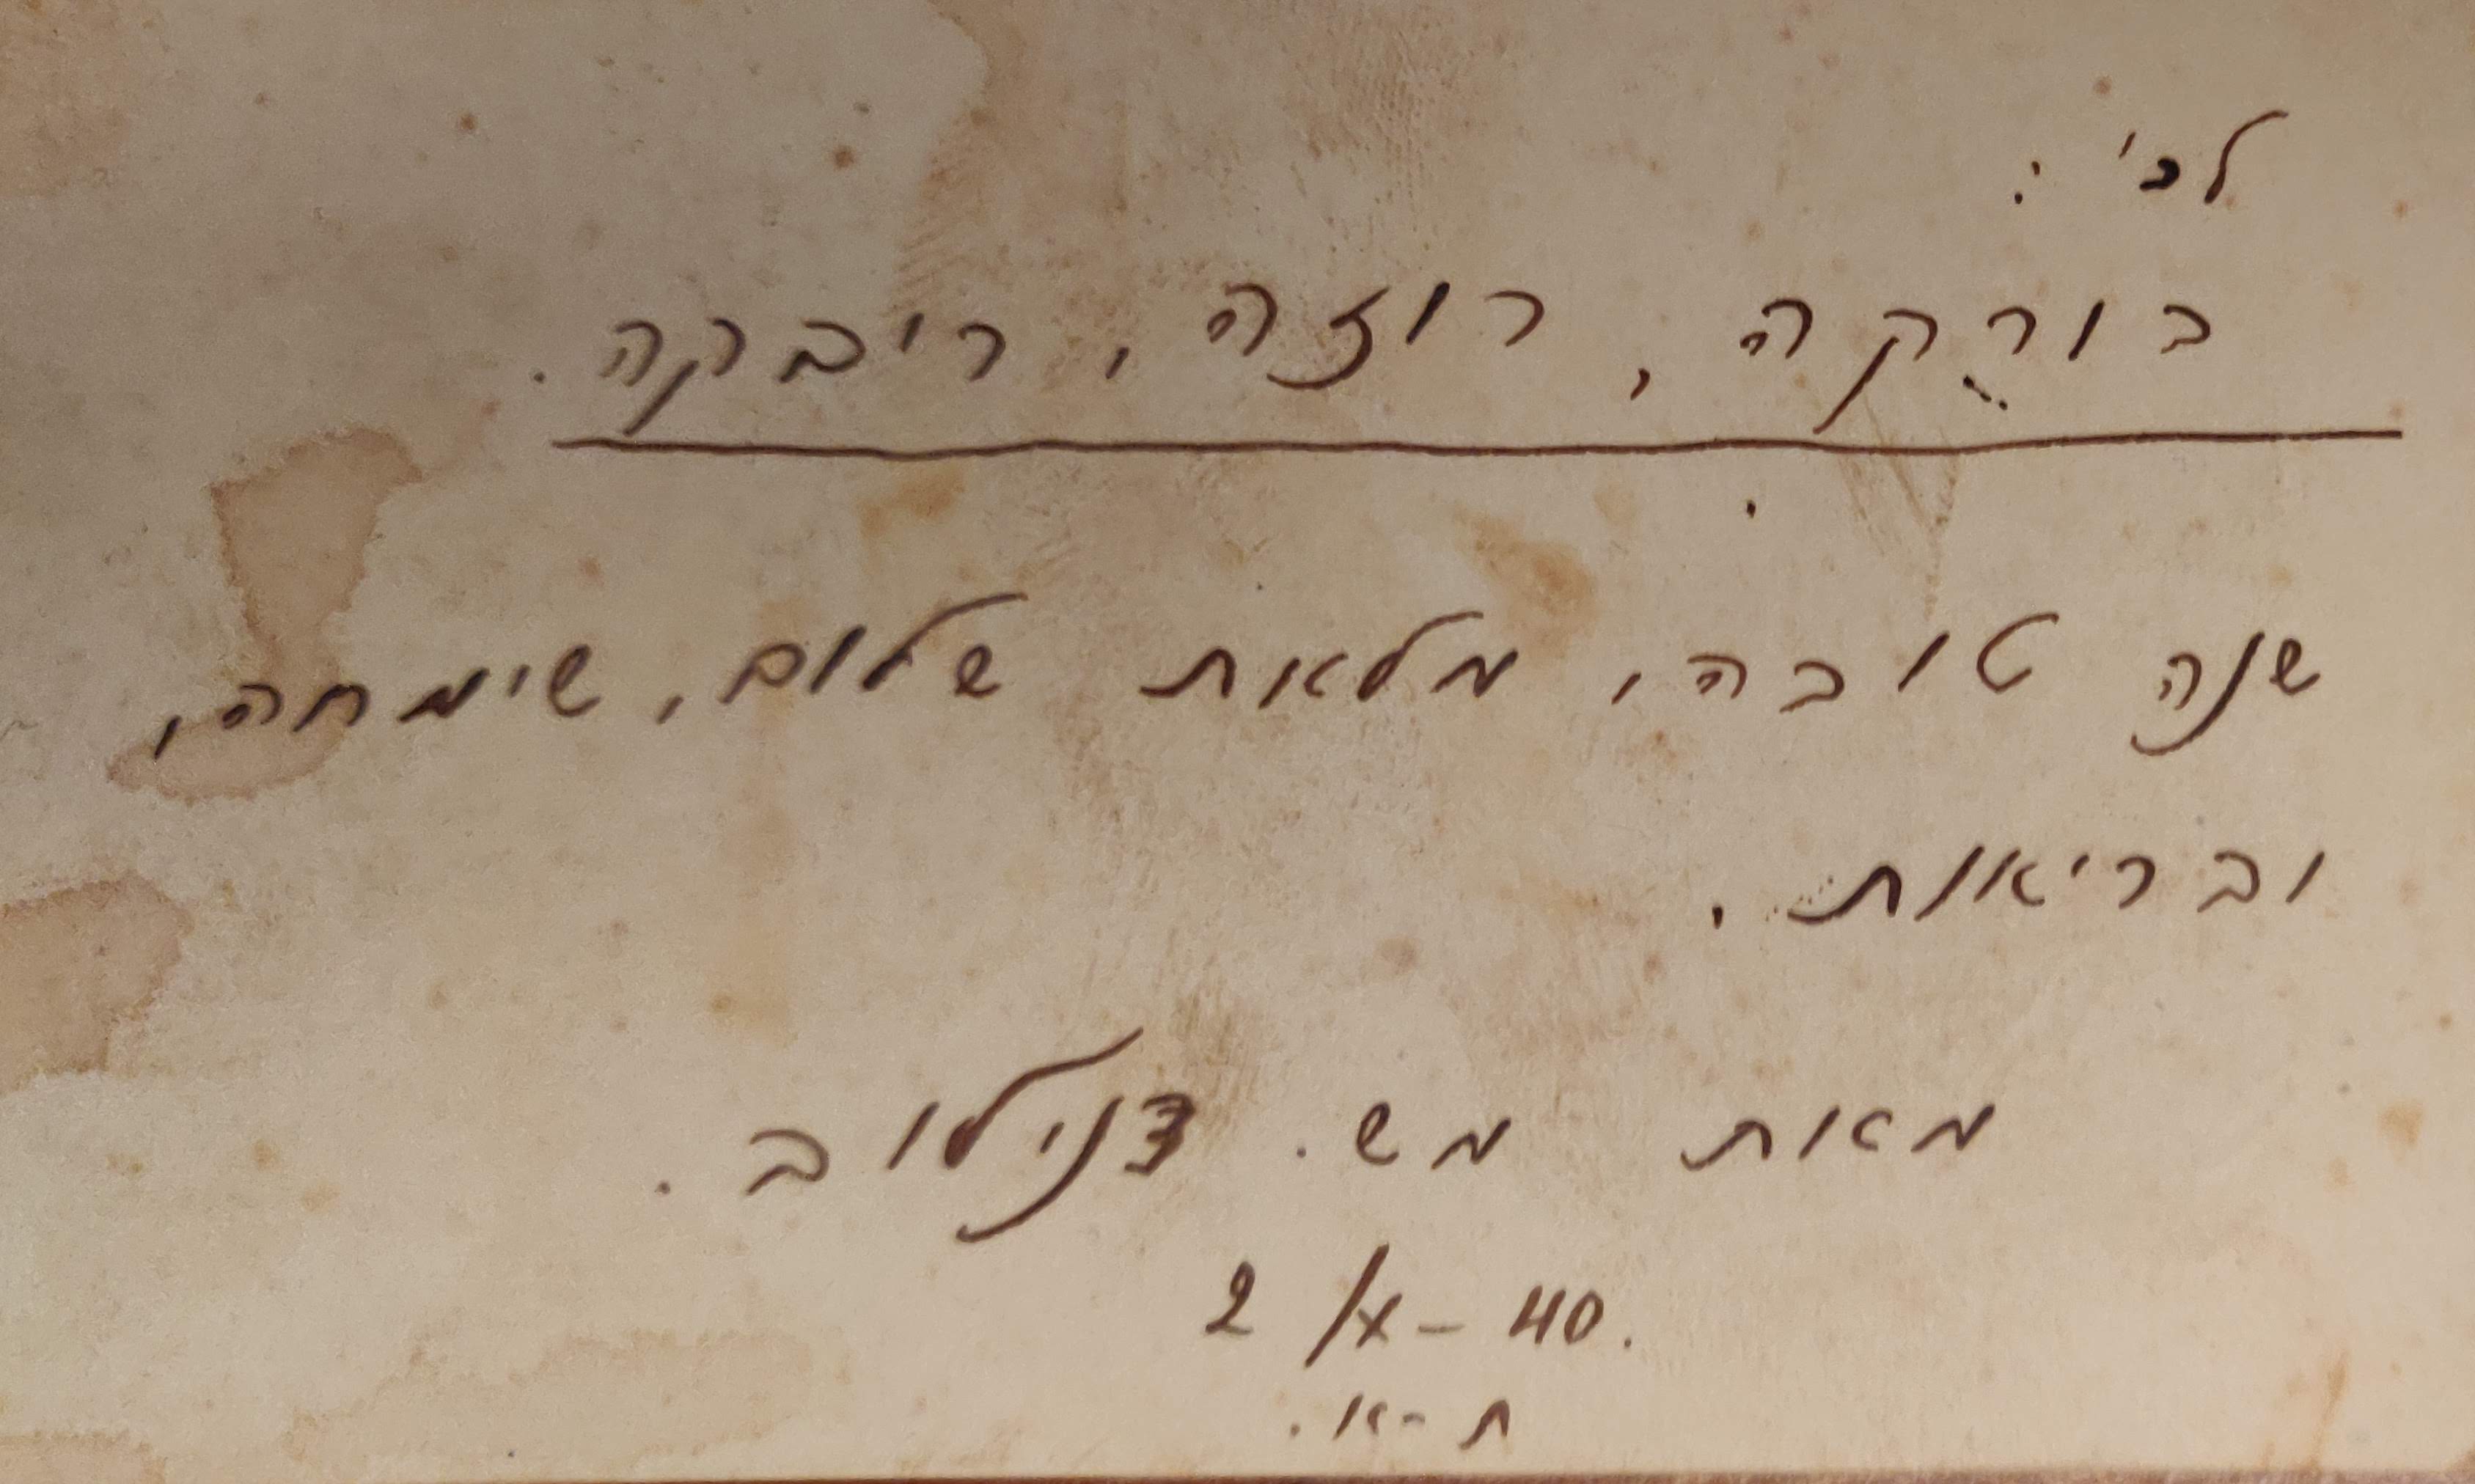 לכ' :
בורקה, רוזה, ריבקה.
שנה טובה, מלאת שלום, שימחה,
ובריאות.
מאת מש. דנילוב.
2/X-40.
ת-א.